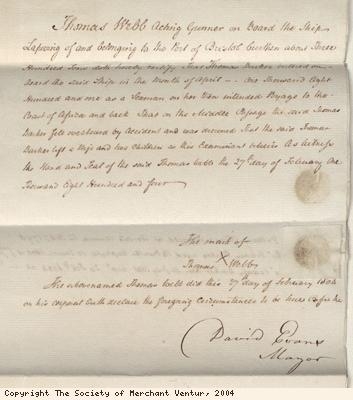 Thomas Webb Acting Gunner on Board the Ship
Lapwing of and belonging to the Port of Bristol Burthen about Three
Hundred Tons doth hereby certify that Thomas Barker entered on
board the said Ship in the Month of April One Thousand Eight
Hundred and one as a Seaman on her then intended Voyage to the
Coast of Africa and back That on the Middle Passage the said Thomas
Barker fell overboard by Accident and was drowned That the said Thomas
Barker left a Wife and two Children as this Examinant believes As witness
the Hand and Seal of the said Thomas Webb the 27th day of February One
Thousand Eight Hundred and four
The mark of
Thomas X Webb
The abovenamed Thomas Webb did this 27th day of February 1804
on his corporal Oath declare the foregoing Circumstances to be true before me
David Evans
Mayor
Copyright The Society of Merchant Ventur, 2004